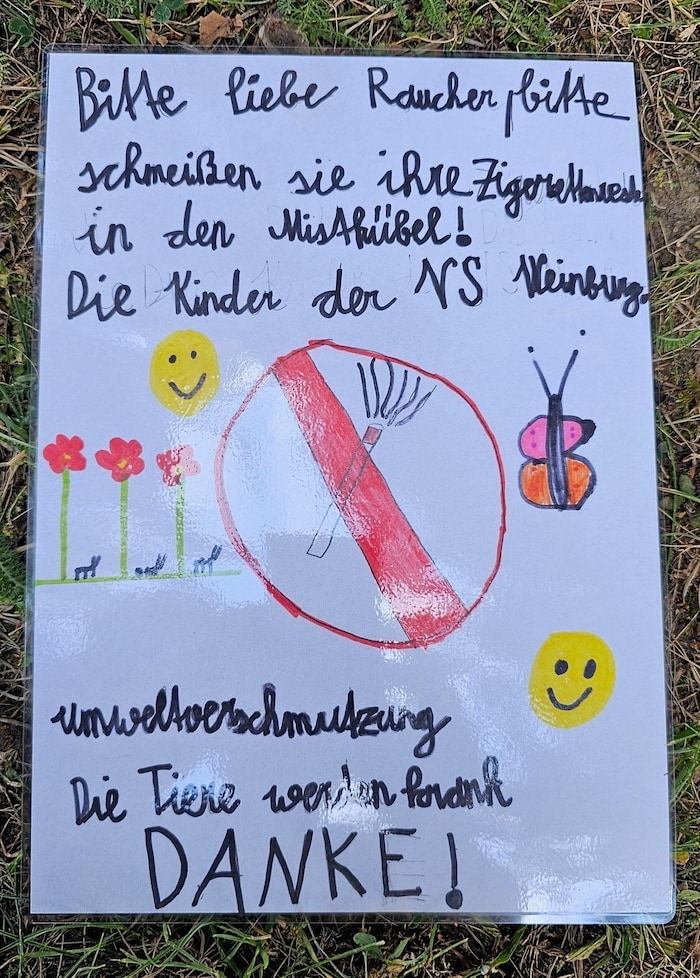 Bitte liebe Raucher, bitte
schmeißen sie ihre
in den Mistkübel!
Die Kinder der VS Weinburg.
umweltverschmutzung
Die Tiere werden krank
DANKE!